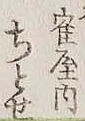 寉屋内
ちとせ